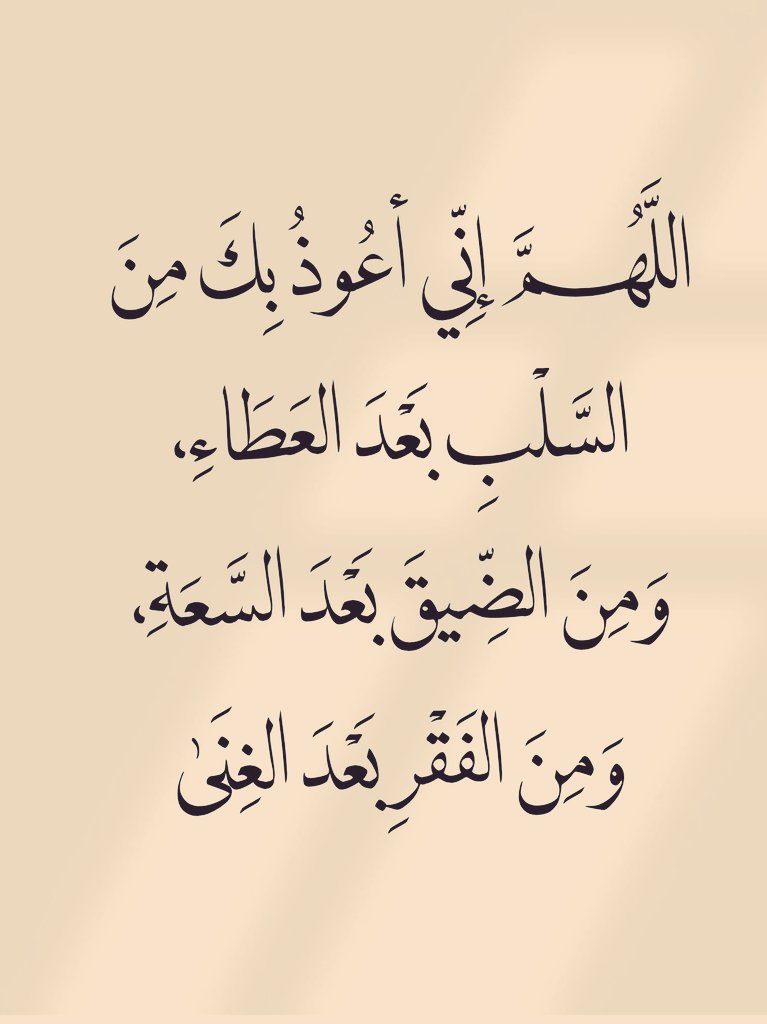 اللَّهُمَّ إِنِّي أعُوذُ بِكَ مِنَ
السَّلْبِ بَعْدَ العَطَاءِ،
وَمِنَ الضِّيقَ بَعْدَ السَّعَةِ،
وَمِنَ الفَقْرِ بَعْدَ الغِنَىٰ